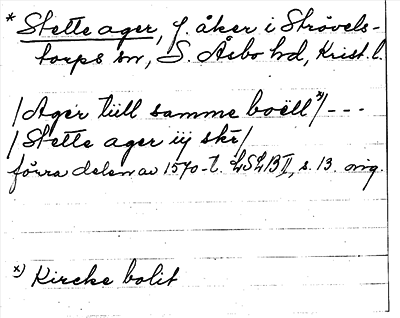 * Stette ager, f. åker i Strövels-
torps sn, S. Åsbo hd, Krist. l.
/Ager till samme boell x)/ - - -
/Stette ager iij skr/
förra delen av 1570-t. LSLB II, s. 13. orig.
x) Kircke bolit